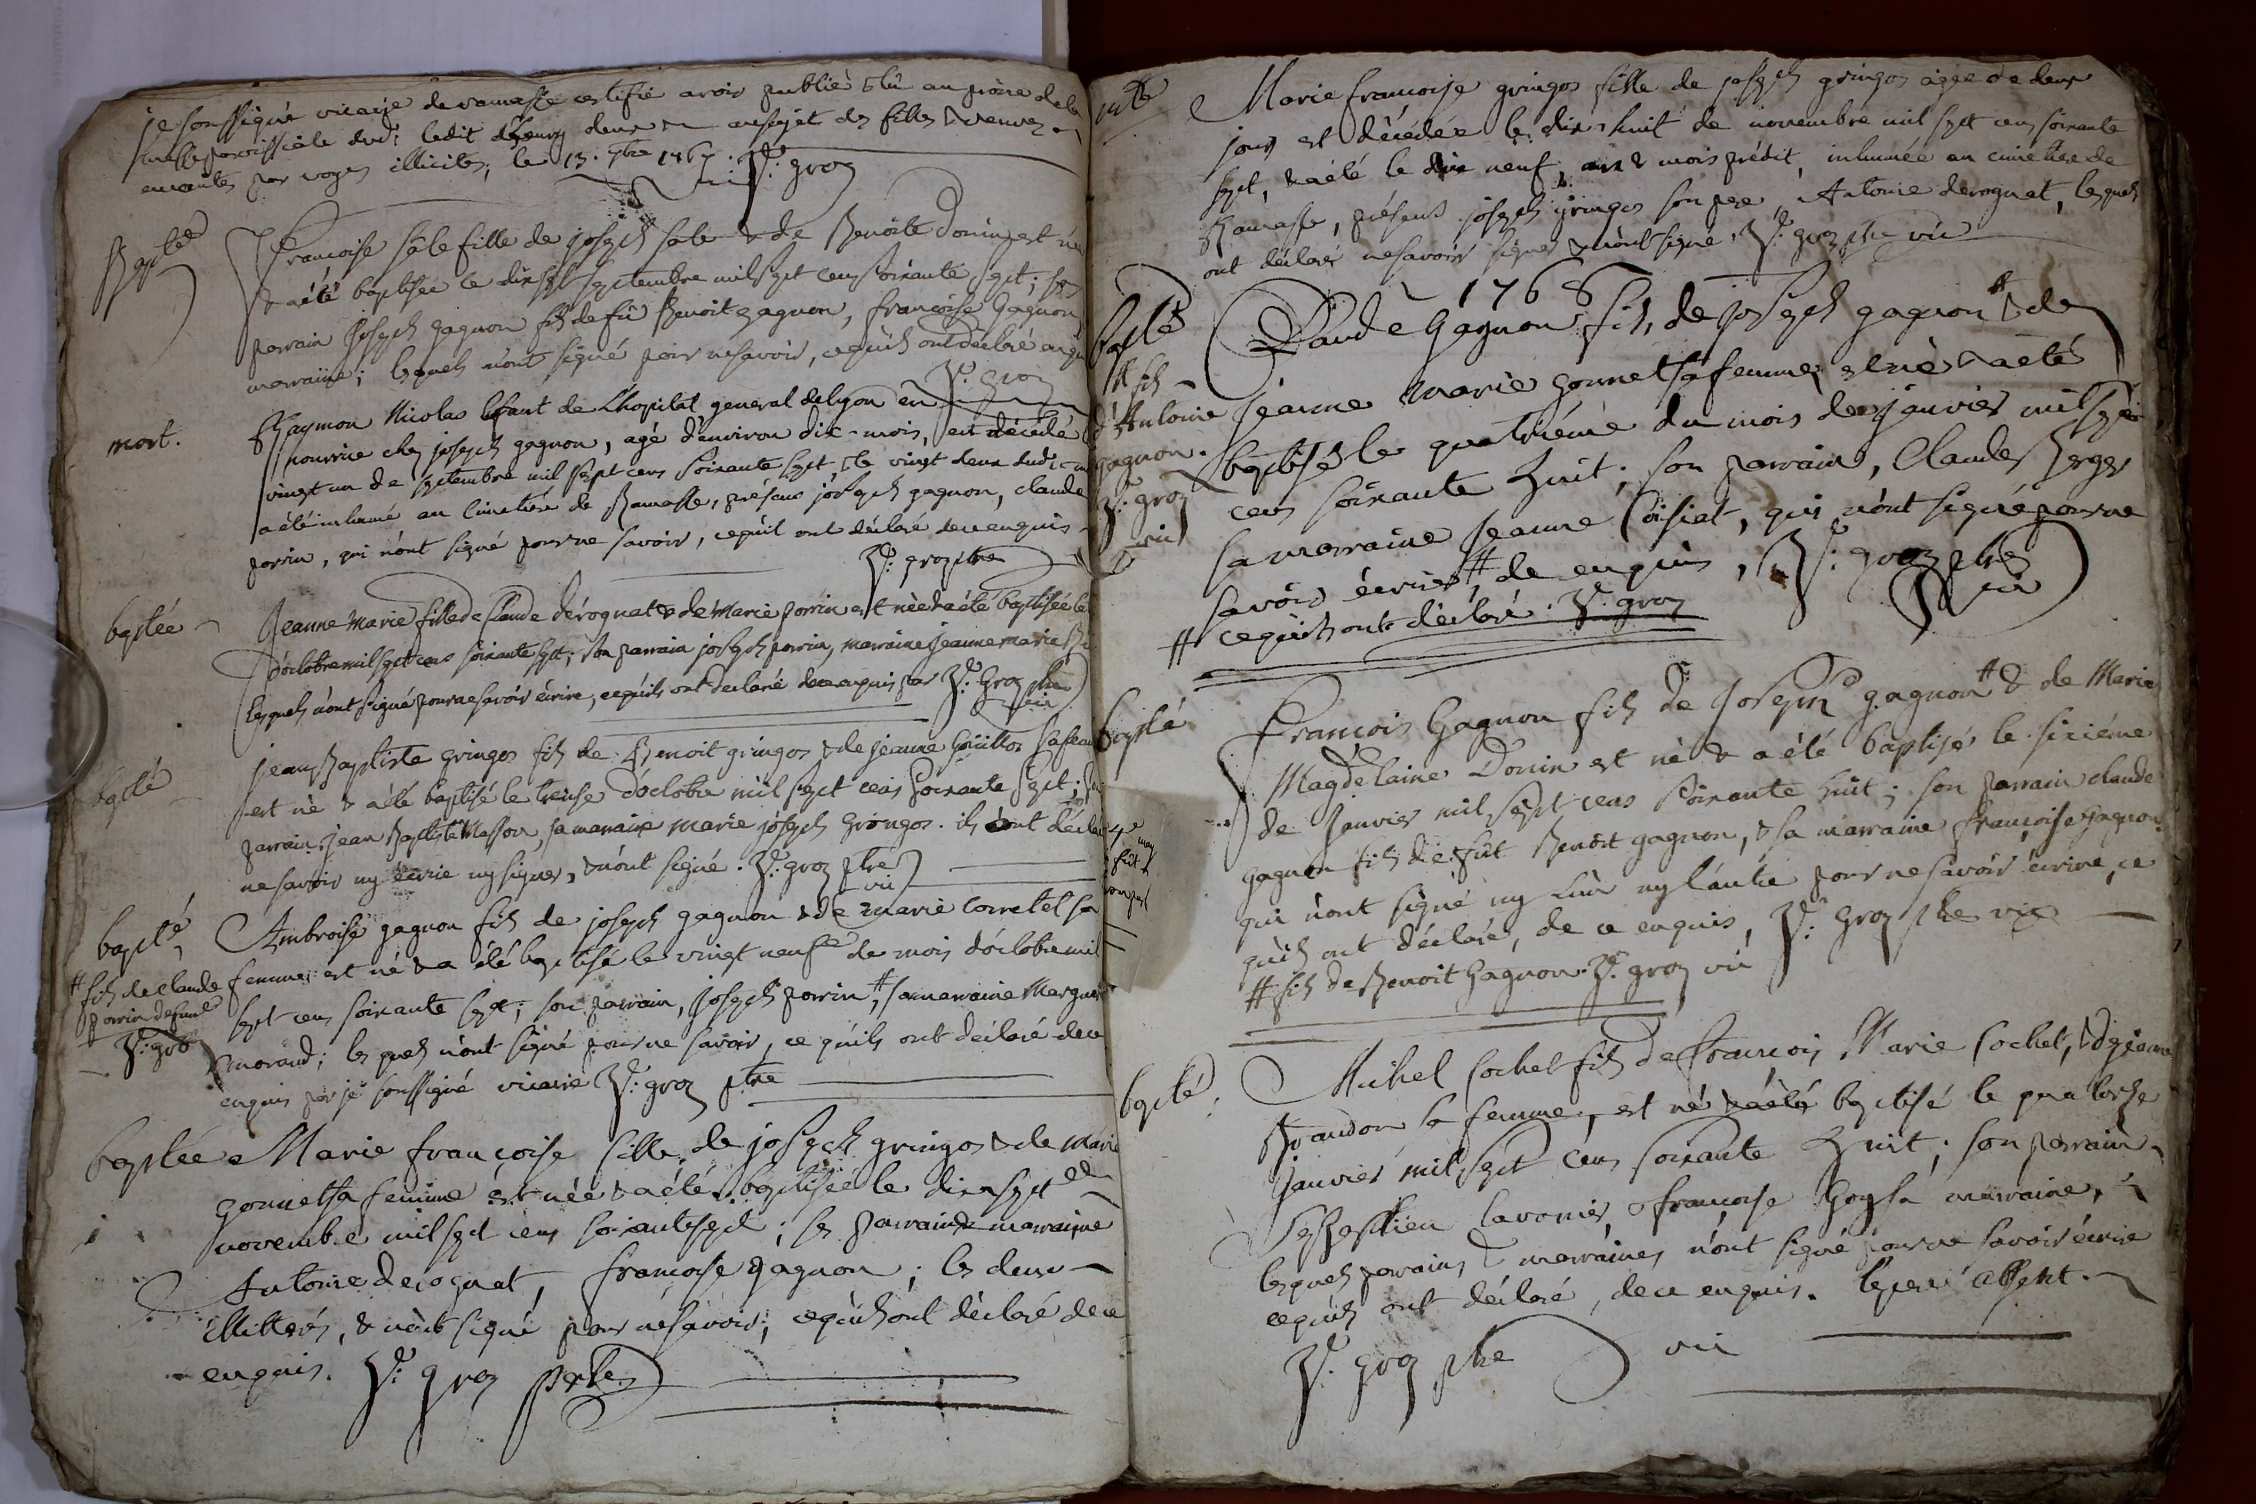 je soussigné vicaire de ramasse certifie avoir publié & lû au prône de la
messe paroissiale dud: ledit d'henry deux au sujet des filles & veuves
enceintes par voyes illicites, le 13. 7bre 1767. Jh: groz
Baptée
Francoise sale fille de joseph sale & de Benoite donin, est née
& a été baptisée le dix sept septembre mil sept cens soixante sept; son
parrain joseph gagnon fils de fû Benoit gagnon, françoise gagnon
marraine; lesquels n'ont signé pour ne savoir, ce qu'ils ont déclaré
Jh: groz
mort.
Raymon Nicolas Enfant de L'hopital general de lyon en
nourrice chez joseph gagnon, agé d'environ dix-mois, est décédé
vingt un de septembre mil sept cens soixante sept & le vingt deux dudit
a été inhumé au Cimetière de Ramasse, présens joseph gagnon, claude
porrin, qui n'ont signé pour ne savoir, ce qu'il ont déclaré de ce enquis
Jh: groz ptre
baptée
Jeanne Marie fille de Claude dérognat & de Marie porrin est née & a été baptisée le
d'octobre mil sept cens soixante sept; son parrain joseph porrin, marraine jeanne marie
lesquels n'ont signé pour ne savoir écrire, ce qu'ils ont déclaré de ce enquis par Jh: Groz ptre
vic
bapté
jean Baptiste gringos fils de Benoit gringos & de jeanne
est né & a été baptisé le treize d'octobre mil sept cens soixante sept;
parrain jean Baptiste Masson, sa marraine marie joseph gringos. ils ont déclaré
ne savoir ny écrire ny signer, & n'ont signé. Jh: groz ptre
vic
bapté
Ambroise gagnon fils de joseph gagnon & de marie Corretel sa
femme, est né & a été baptisé le vingt neuf de mois d'octobre mil
sept cens soixante sept; son parrain, joseph porrin #, sa marraine Marguerite
morand; les quels n'ont signé pour ne savoir, ce qu'ils ont déclaré de ce
enquis par je soussigné vicaire Jh: groz ptre
# fils de claude
porrin defunt
Jh: groz
baptée
Marie françoise fille de joseph gringos & de Marie
gonnet sa femme est née & a été baptisée le dix sept
novembre mil sept cens soixante sept; ses parrain & marraine
Antoine derognat, francoise gagnon; les deux
illittérés, & n'ont signé pour ne savoir; ce qu'ils ont déclaré de ce
enquis. Jh: groz ptre
Marie francoise gringos fille de joseph gringos agée de deux
jours est décédée le dix-huit de novembre mil sept cens soixante
sept, & a été le dix neuf, an & mois prédit, inhumée au cimetiere de
Ramasse, présens joseph gringos son pere, Antoine derognat, lesquels
ont déclaré ne savoir signer & n'ont signé. Jh: groz ptre vic
1768
bapté
Claude Gagnon fils de joseph gagnon # & de
jeanne marie gonnet sa femme, est né & a été
baptisé le quatriéme du mois de janvier mil sept
cens soixante huit; son parrain, Claude Berger
sa marraine jeanne Coisiat, qui n'ont signé pour ne
savoir écrire # de ce enquis, Jh: groz ptre
vic
# ce qu'ils ont déclaré. Jh: groz
# fils
d'Antoine
gagnon.
Jh: groz
vic
bapté
Francois Gagnon fils de Joseph gagnon # & de Marie
Magdelaine Donin est né & a été baptisé le sixiéme
de Janvier mil sept cens soixante huit; son parrain claude
gagnon fils de fût Benoit gagnon, & sa marraine françoise gagnon
qui n'ont signé ny l'un ny l'autre pour ne savoir écrire, ce
qu'ils ont déclaré, de ce enquis, Jh: groz ptre vic
# fils de Benoit Gagnon. Jh. groz vic
bapté
Michel Cochet fils de francois Marie Cochet, & de jeanne
Brandon sa femme, est né & a été baptisé le quatorze
janvier mil sept cens soixante huit; son parrain
Sebastien lavorier, & francoise Goy sa marraine,
lesquels parrains & marraines n'ont signé pour ne savoir écrire
ce qu'ils ont déclaré, de ce enquis. le pere Absent.
Jh: groz ptre vic